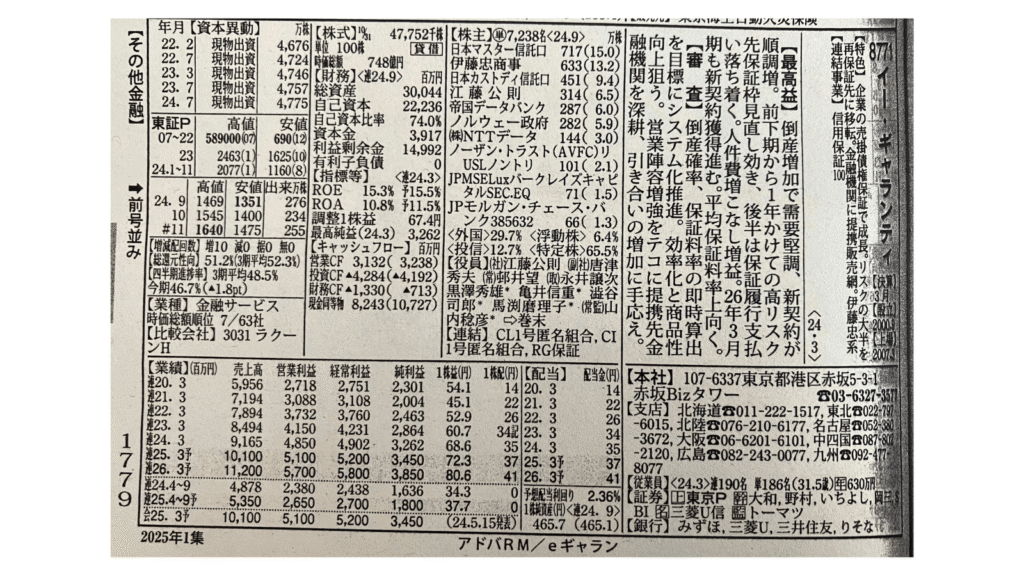 8771 イー・ギャランティ
【特色】企業の売掛債権保証で成長。リスクの大半を
再保証先に移転。金融機関に提携販売網。伊藤忠系
【連結事業】信用保証100
〈24・3〉
【最高益】倒産増加で需要堅調、新契約が
順調増。前下期から1年かけての高リスク
先保証枠見直し効き、後半は保証履行支払
い落ち着く。人件費増こなし増益。26年3月
期も新契約獲得進む。平均保証料率上向く。
【審査】倒産確率、保証料率の即時算出
を目標にシステム化推進。効率化と商品性
向上狙う。営業陣容増強をテコに提携先金
融機関を深耕、引き合いの増加に手応え。
【株主】㊥7,238名<24.9> 万株
日本マスター信託口 717(15.0)
伊藤忠商事 633(13.2)
日本カストディ信託口 451( 9.4)
江藤公則 314( 6.5)
帝国データバンク 287( 6.0)
ノルウェー政府 282( 5.9)
㈱NTTデータ 144( 3.0)
ノーザン・トラスト(AVFC)リ
USLノントリ 101( 2.1)
JPMSELuxバークレイズキャピ
タルSEC.EQ 71( 1.5)
JPモルガン・チェース・バ
ンク385632 66( 1.3)
<外国>29.7% <浮動株> 6.4%
<投信>12.7% <特定株>65.5%
【役員】㈳江藤公則 ㈵唐津
秀夫 ㈖邨井望 ㈬永井譲次
黒澤秀雄* 亀井信重* 澁谷
司郎* 馬渕磨理子* (常監)山
内稔彦* ⇨巻末
【連結】CL1号匿名組合, CI
1号匿名組合, RG保証
【株式】10/31 47,752千株
単位 100株 【貸借】
時価総額 748億円
【財務】<連24.9> 百万円
総資産 30,044
自己資本 22,236
自己資本比率 74.0%
資本金 3,917
利益剰余金 14,992
有利子負債 0
【指標等】<連24.3>
ROE 15.3% 予15.5%
ROA 10.8% 予11.5%
調整1株益 67.4円
最高純益(24.3) 3,262
【キャッシュフロー】百万円
営業CF 3,132( 3,238)
投資CF ▲4,284(▲4,192)
財務CF ▲1,330( ▲713)
現金同等物 8,243(10,727)
年月【資本異動】 万株
22. 2 現物出資 4,676
22. 7 現物出資 4,724
23. 3 現物出資 4,746
23. 7 現物出資 4,757
24. 7 現物出資 4,775
東証P 高値 安値
07〜22 589000(07) 690(12)
23 2463(1) 1625(10)
24.1〜11 2077(1) 1160(8)
高値 安値 出来万株
24. 9 1469 1351 276
10 1545 1400 234
#11 1640 1475 255
【増減配回数】増10 減0 据0 無0
【総還元性向】51.2%(3期平均52.3%)
【四半期進捗率】3期平均48.5%
今期46.7%(▲1.8pt)
【業種】金融サービス
時価総額順位 7/63社
【比較会社】3031 ラクーン
H
【その他金融】
➡前号並み
【業績】(百万円) 売上高 営業利益 経常利益 純利益 1株益(円) 1株配(円)
連20. 3 5,956 2,718 2,751 2,301 54.1 14
連21. 3 7,194 3,088 3,108 2,004 45.1 22
連22. 3 7,894 3,732 3,760 2,463 52.9 26
連23. 3 8,494 4,150 4,231 2,864 60.7 34記
連24. 3 9,165 4,850 4,902 3,262 68.6 35
連25. 3予 10,100 5,100 5,200 3,450 72.3 37
連26. 3予 11,200 5,700 5,800 3,850 80.6 41
連24.4〜9 4,878 2,380 2,438 1,636 34.3 0
連25.4〜9予 5,350 2,650 2,700 1,800 37.7 0
会25. 3予 10,100 5,100 5,200 3,450 (24.5.15発表)
【配当】 配当金(円)
20. 3 14
21. 3 22
22. 3 26
23. 3 34
24. 3 35
25. 3予 37
26. 3予 41
予想配当利回り 2.36%
1株純資産(円)<連24. 9>
465.7 (465.1)
【本社】107-6337東京都港区赤坂5-3-1
赤坂Bizタワー ☎03-6327-3577
【支店】北海道☎011-222-1517, 東北☎022-797
-6015, 北陸☎076-210-6177, 名古屋☎052-380
-3672, 大阪☎06-6201-6101, 中四国☎087-802
-2120, 広島☎082-243-0077, 九州☎092-477-
8077
【従業員】<24.3>連190名 単186名(31.5歳)㊉630万円
【証券】㊤東京P ㊩大和, 野村, いちよし,
BI ㊔三菱U信 ㊬トーマツ
【銀行】みずほ, 三菱U, 三井住友, りそな
1779
2025年1集
アドバRM/eギャラン